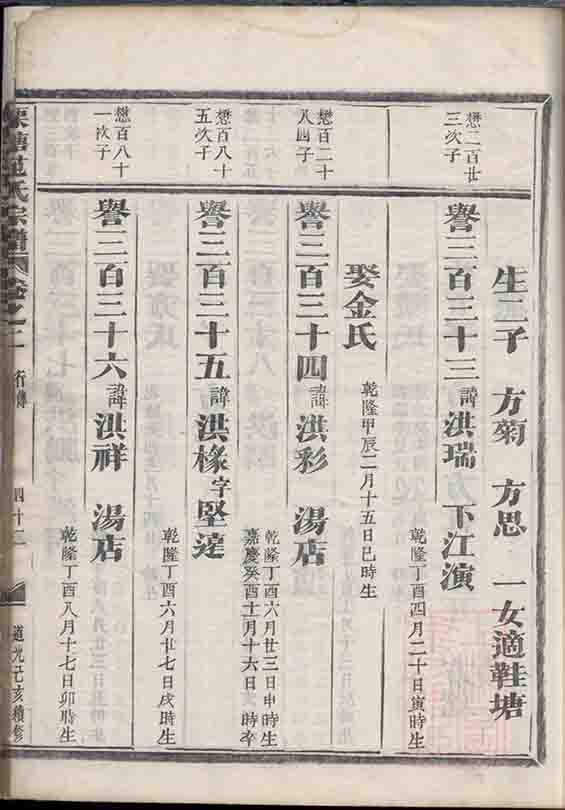 生二子 方菊 方思 一女適鞋塘
懋二百廿
三次子
譽二百三十三 諱洪瑞 下江演
乾隆丁酉四月二十日寅時生
娶金氏
乾隆甲辰二月十五日巳時生
懋百二十
八四子
譽二百三十四 諱洪彩 湯店
乾隆丁酉六月廿三日申時生
嘉慶癸酉十一月十六日 時卒
懋百八十
五次子
譽二百三十五 諱洪椽 字堅達
乾隆丁酉六月廿七日戌時生
懋百八十
一次子
譽二百三十六 諱洪祥 湯店
乾隆丁酉八月十七日卯時生
范氏宗譜 卷之二 行傳 四十二 道光己亥續修